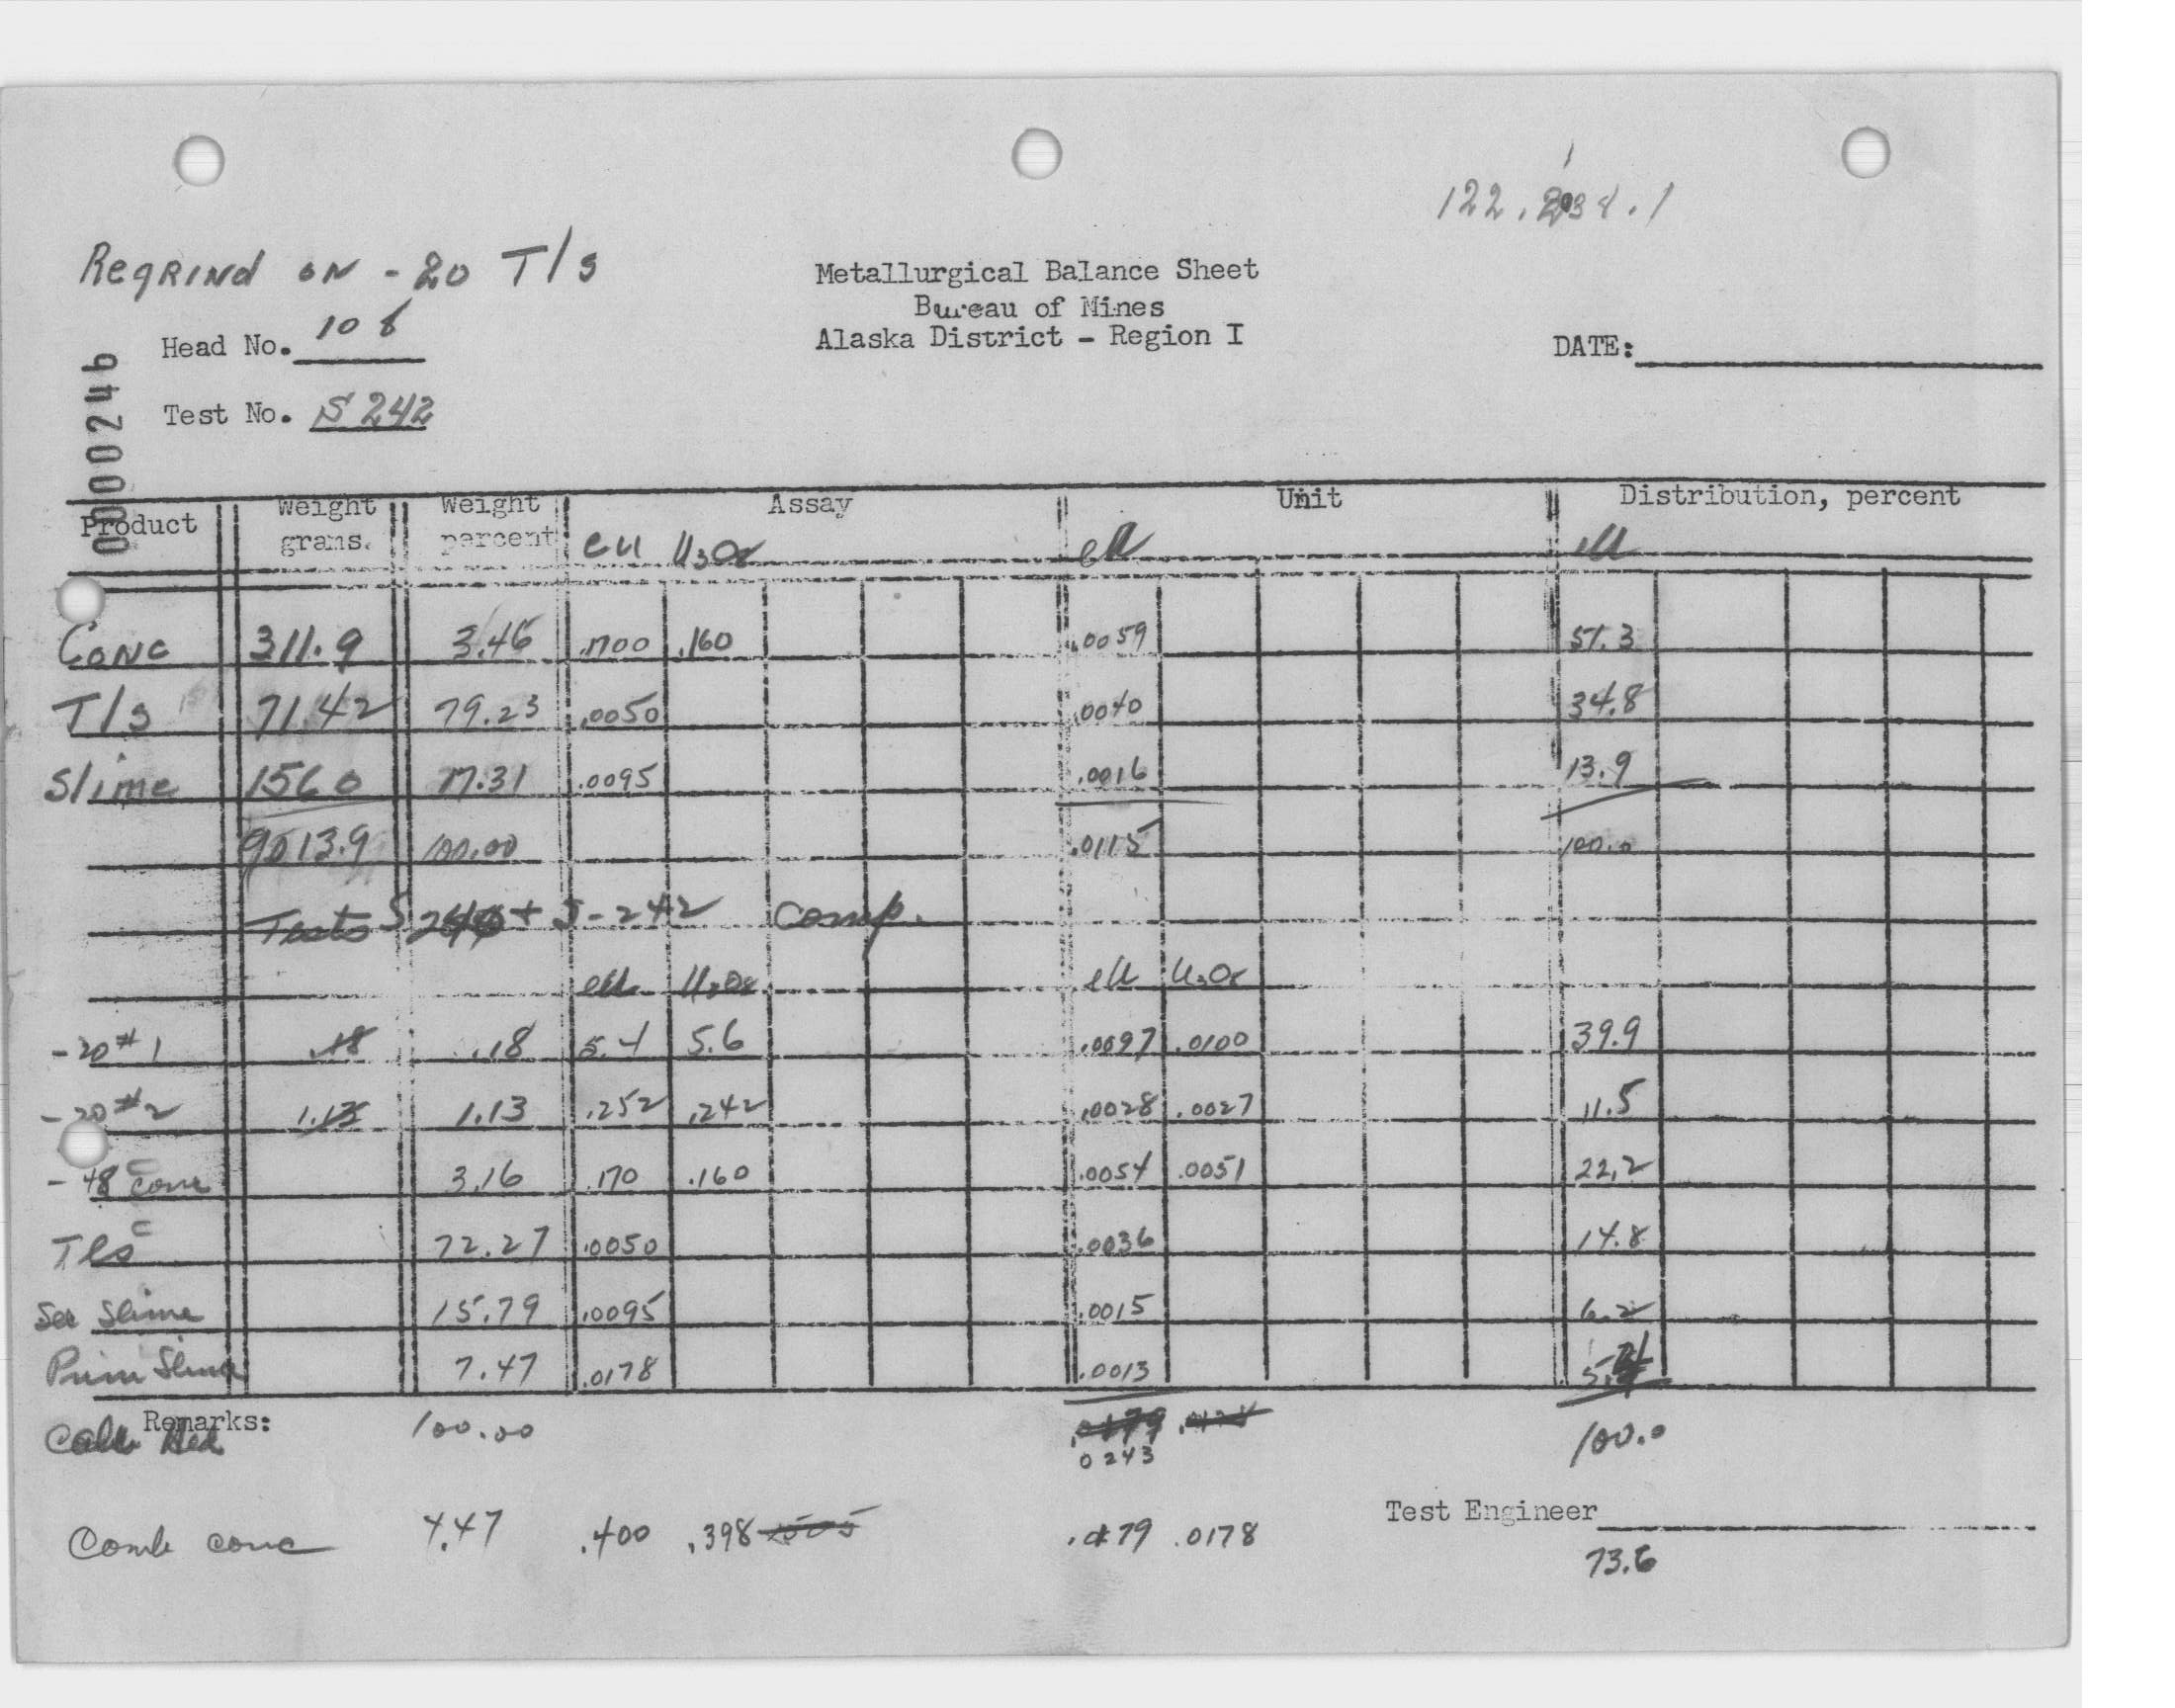 122.
Regrind on -20 T/s
Metallurgical Balance Sheet
Bureau of Mines
Alaska District - Region I
Head No. 108
DATE:
Test No. S 242
0000246
Product Weight grams. Weight percent Assay Unit Distribution, percent
eU U3O8 eU eU
Conc 311.9 3.46 .1700 .160 .0059 51.3
T/s 7142 79.23 .0050 .0040 34.8
Slime 1560 17.31 .0095 .0016 13.9
9013.9 100.00 .0115 100.0
Tests S + S-242 Comp.
eU U3O8 eU U3O8
-20 #1 .18 .18 5.4 5.6 .0097 .0100 39.9
-20 #2 1.13 1.13 .252 .242 .0028 .0027 11.5
-48 Conc 3.16 .170 .160 .0054 .0051 22.2
Tls 72.27 .0050 .0036 14.8
Sec Slime 15.79 .0095 .0015 6.2
Prim Slime 7.47 .0178 .0013
Remarks:
Calc Hed 100.00 .0179 0243 100.0
Test Engineer
Comb conc 4.47 .400 .398 .0179 .0178 73.6